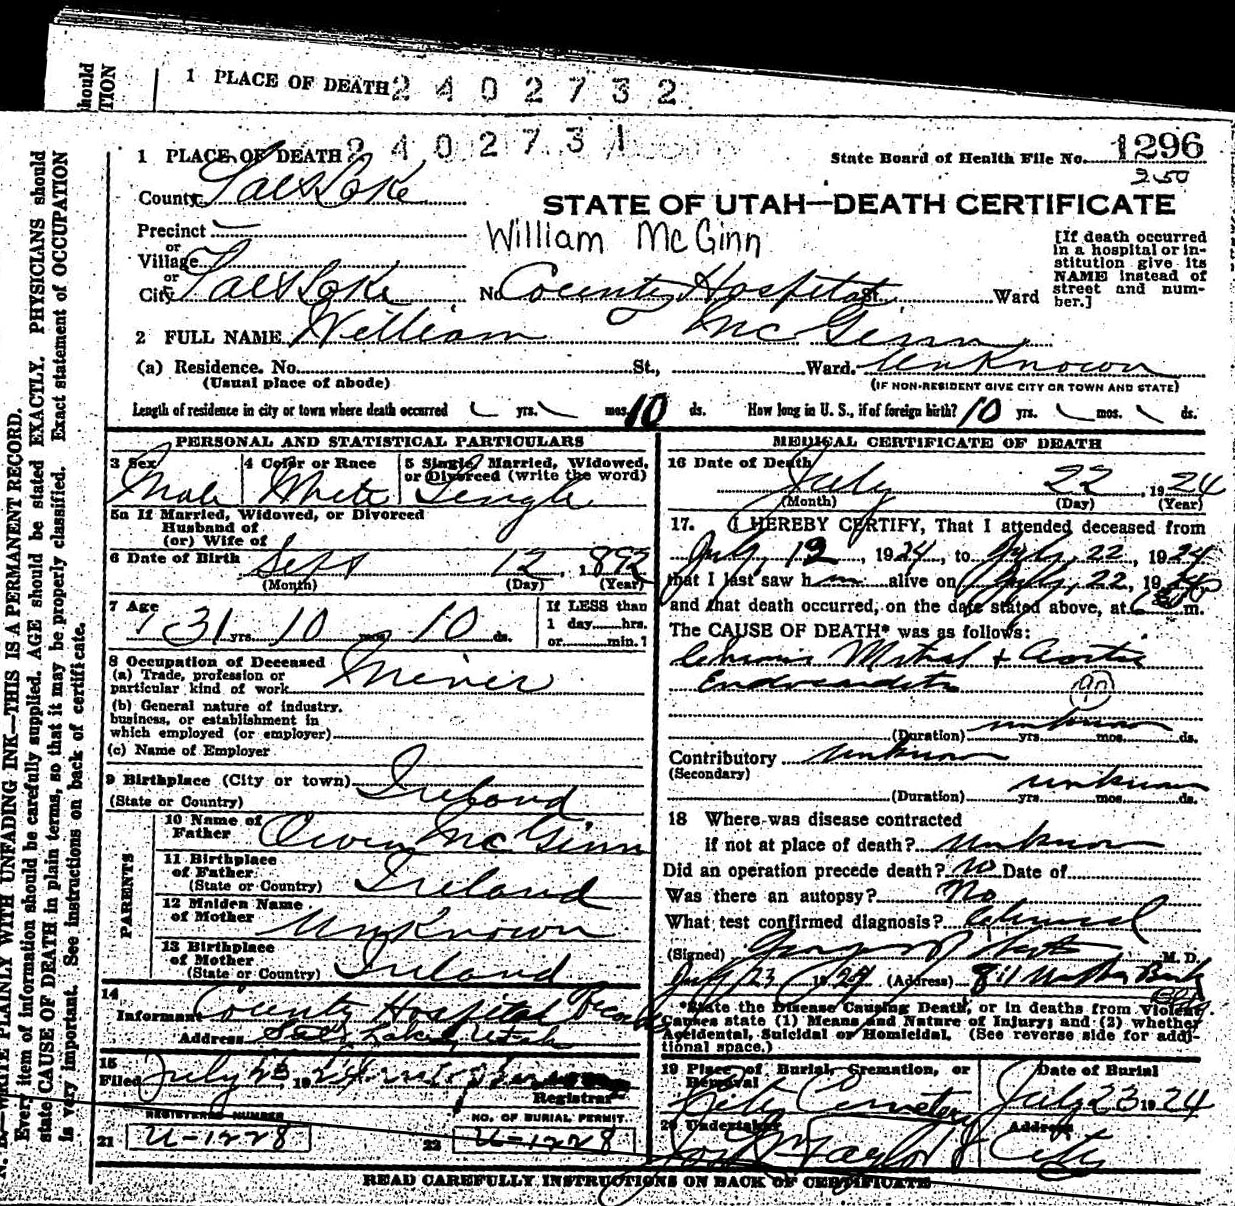 1 PLACE OF DEATH 2402732
1 PLACE OF DEATH 2402731
State Board of Health File No. 1296
250
County Salt Lake
STATE OF UTAH—DEATH CERTIFICATE
Precinct
William McGinn
or
Village
or
City Salt Lake No. County Hospital St. Ward
[If death occurred
in a hospital or in-
stitution give its
NAME instead of
street and num-
ber.]
2 FULL NAME William McGinn
(a) Residence. No. St., Ward. Unknown
(Usual place of abode) (IF NON-RESIDENT GIVE CITY OR TOWN AND STATE)
Length of residence in city or town where death occurred yrs. mos. 10 ds. How long in U. S., if of foreign birth? 10 yrs. mos. ds.
PERSONAL AND STATISTICAL PARTICULARS
3 Sex 4 Color or Race 5 Single, Married, Widowed,
or Divorced (write the word)
Male White Single
5a If Married, Widowed, or Divorced
Husband of
(or) Wife of
6 Date of Birth Sept 12, 1892
(Month) (Day) (Year)
7 Age 31 yrs. 10 mos. 10 ds.
If LESS than
1 day hrs.
or min.?
8 Occupation of Deceased
(a) Trade, profession or
particular kind of work Miner
(b) General nature of industry,
business, or establishment in
which employed (or employer)
(c) Name of Employer
9 Birthplace (City or town)
(State or Country) Ireland
PARENTS
10 Name of
Father Owen McGinn
11 Birthplace
of Father
(State or Country) Ireland
12 Maiden Name
of Mother Unknown
13 Birthplace
of Mother
(State or Country) Ireland
14
Informant County Hospital Records
Address Salt Lake, Utah
15
Filed July 23, 1924
Registrar
REGISTERED NUMBER NO. OF BURIAL PERMIT.
21 U-1228 22 U-1228
MEDICAL CERTIFICATE OF DEATH
16 Date of Death
July 22, 1924
(Month) (Day) (Year)
17. I HEREBY CERTIFY, That I attended deceased from
July, 12, 1924, to July, 22, 1924
that I last saw him alive on July, 22, 1924
and that death occurred, on the date stated above, at m.
The CAUSE OF DEATH* was as follows:
Chronic Mitral + Aortic
Endocarditis 90
unknown
(Duration) yrs. mos. ds.
Contributory unknown
(Secondary)
unknown
(Duration) yrs. mos. ds.
18 Where was disease contracted
if not at place of death? unknown
Did an operation precede death? no Date of
Was there an autopsy? No
What test confirmed diagnosis? Clinical
(Signed) M. D.
July 23, 1924 (Address)
*State the Disease Causing Death, or in deaths from Violent
Causes state (1) Means and Nature of Injury; and (2) whether
Accidental, Suicidal or Homicidal. (See reverse side for addi-
tional space.)
19 Place of Burial, Cremation, or
Removal
City Cemetery
Date of Burial
July 23 1924
20 Undertaker Address
Taylor City
READ CAREFULLY INSTRUCTIONS ON BACK OF CERTIFICATE
N. B.—WRITE PLAINLY WITH UNFADING INK—THIS IS A PERMANENT RECORD.
Every item of information should be carefully supplied. AGE should be stated EXACTLY. PHYSICIANS should
state CAUSE OF DEATH in plain terms, so that it may be properly classified. Exact statement of OCCUPATION
is very important. See instructions on back of certificate.